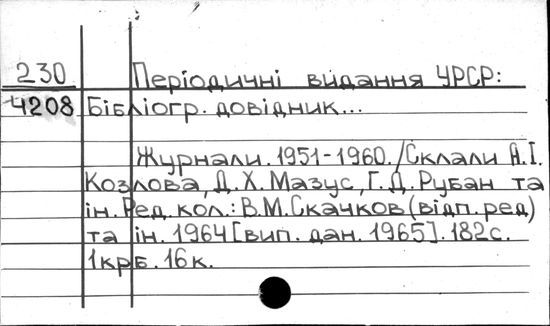 230 Періодичні видання УРСР:
4208 Бібліогр. довідник...
Журнали. 1951-1960. /Склали А.І.
Козлова, Д.Х. Мазус, Г.Д. Рубан та
ін. Ред. кол.: В.М. Скачков (відп. ред)
та ін. 1964 [вип. дан. 1965]. 182 с.
1 крб. 16 к.